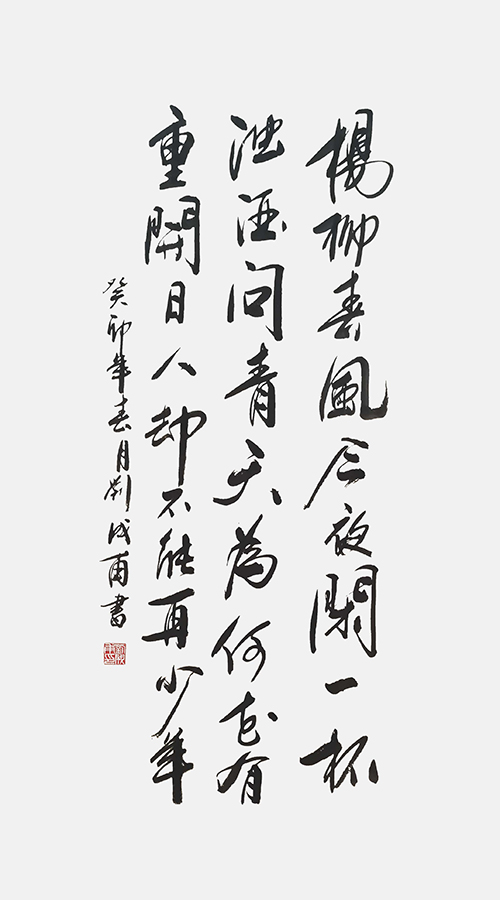 楊柳春風今夜閑一杯
浊酒問青天為何花有
重開日人却不能再少年
癸卯年春月劉成甫書